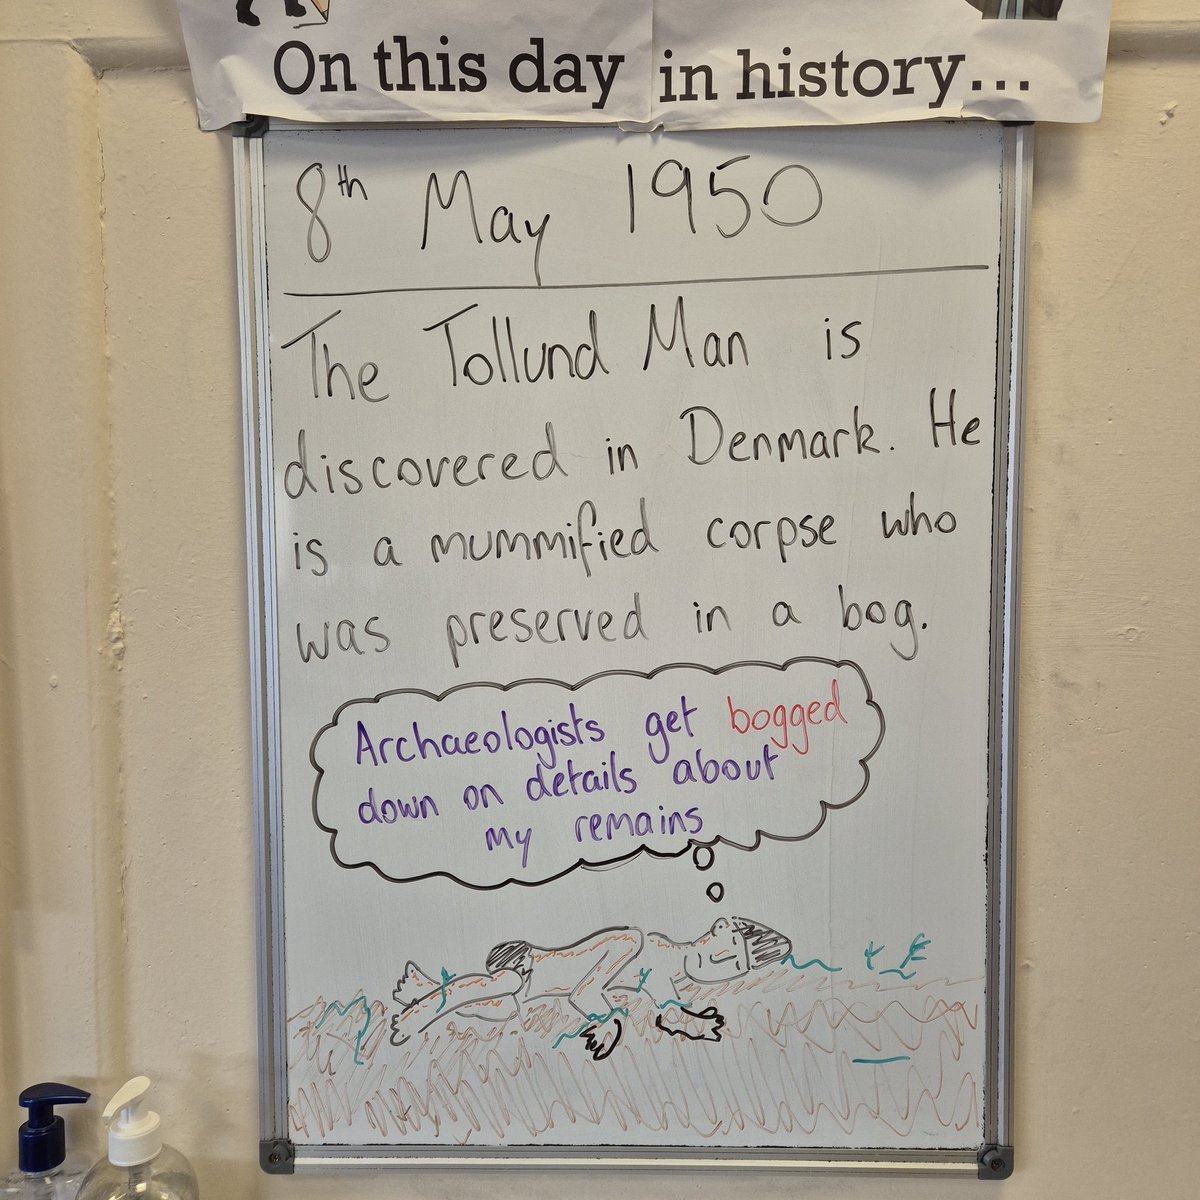 On this day in history...
8th May 1950
The Tollund Man is
discovered in Denmark. He
is a mummified corpse who
was preserved in a bog.
Archaeologists get bogged
down on details about
my remains